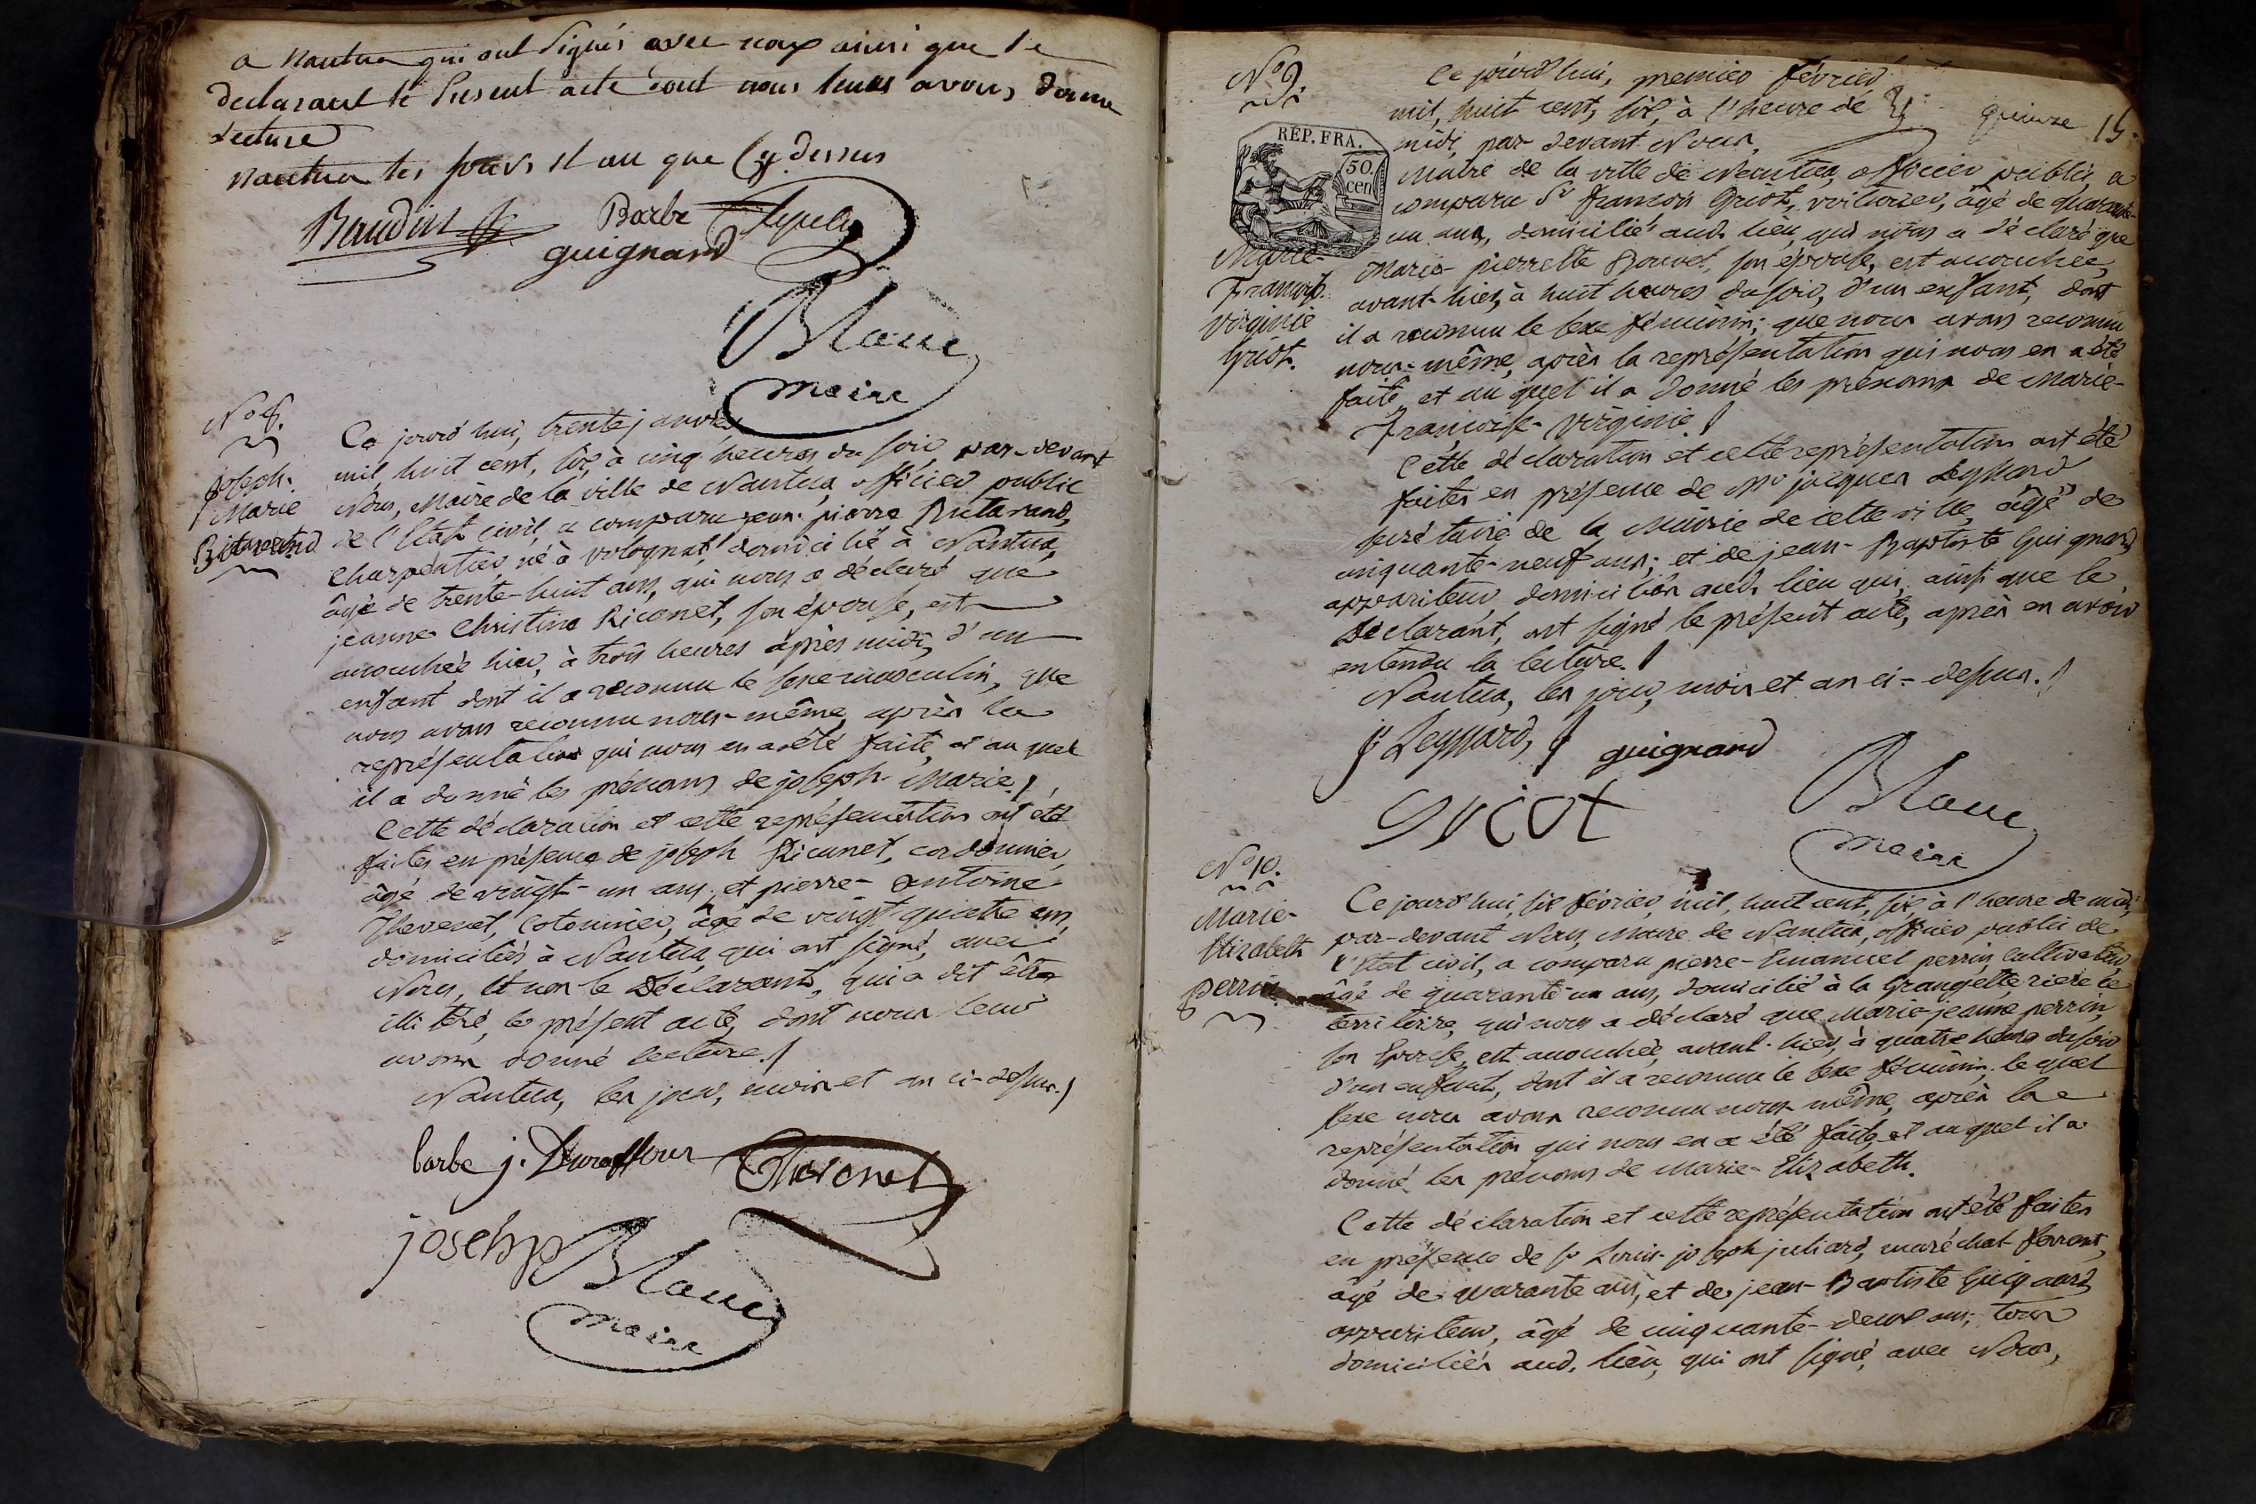 a Nantua qui ont signés avec nous ainsi que le
declarant le Present acte dont nous leurs avons donné
Lecture
Nantua les jours et an que Cy dessus
Baudin Barbe
guignard
Blanc
maire
N° 8.
Joseph-
Marie
Ce jourd'hui, trente janvier
mil, huit cent, six, à cinq heures du soir, par-devant
Nous, Maire de la ville de Nantua, officier public
de l'Etat civil, a comparu jean-pierre
Charpentier, né à volognat, domicilié à Nantua,
âgé de trente-huit ans, qui nous a déclaré que
jeanne Christine Riconet, son épouse, est
accouchée hier, à trois heures après midi, d'un
enfant dont il a reconnu le sexe masculin, que
nous avons reconnu nous-même, après la
représentation qui nous en a été faite, et au quel
il a donné les prénoms de joseph-Marie./
Cette déclaration et cette représentation ont été
faites en présence de joseph Ricunet, cordonnier,
âgé de vingt-un ans, et pierre-antoine
Thevenet, Cotonnier, âgé de vingt quatre ans,
domiciliés à Nantua, qui ont signé, avec
Nous, et non le Déclarant, qui a dit être
illitéré, le présent acte, dont nous leur
avons donné lecture./
Nantua, les jour, mois et an ci-dessus./
barbe j. Duraffour Thevenet
josehp Blanc
maire
N° 9.
quinze 15.
RÉP. FRA.
50.
cen
Marie-
Françoise-
Virginie
Griot.
Ce jourd'hui, premier février
mil, huit cent, six, à l'heure de
midi, par devant Nous,
Maire de la ville de Nantua, officier public, a
comparu Sr françois Griot, voiturier, âgé de quarante-
un ans, domicilié aud. lieu, qui nous a déclaré que
Marie-pierrette Bouvet, son épouse, est accouchée,
avant-hier, à huit heures du soir, d'un enfant, dont
il a reconnu le sexe féminin; que nous avons reconnu
nous-même, après la représentation qui nous en a été
faite, et au quel il a donné les prénoms de Marie-
Françoise-Virginie./
Cette déclaration et cette représentation ont été
faites en présence de Mr jacques
secrétaire de la Mairie de cette ville, âgé de
cinquante-neuf ans; et de jean-Baptiste Guignard
appariteur, domiciliés aud. lieu qui, ainsi que le
Déclarant, ont signé le présent acte, après en avoir
entendu la lecture./
Nantua, les jour, mois et an ci-dessus./
guignard
Griot
Blanc
maire
N° 10.
Marie-
Elizabeth
perrin
Ce jourd'hui, six février, mil, huit cent, six, à l'heure de midi,
par-devant Nous, Maire de Nantua, officier public de
l'Etat civil, a comparu pierre-Emanuel perrin, cultivateur,
âgé de quarante-un ans, domicilié à la Grangette, rière ce
territoire, qui nous a déclaré que Marie-jeanne perrin,
son Epouse, est accouchée, avant-hier, à quatre heures du soir
d'un enfant, dont il a reconnu le sexe féminin; le quel
sexe nous avons reconnu nous-même, après la
représentation qui nous en a été faite, et au quel il a
donné les prénoms de Marie-Elizabeth.
Cette déclaration et cette représentation ont été faites
en présence de Sr Louis-joseph juliard, maréchal-ferrant,
âgé de quarante ans, et de jean-Baptiste Guignard
appariteur, âgé de cinquante-deux ans; tous
domiciliés aud. lieu, qui ont signé, avec Nous,